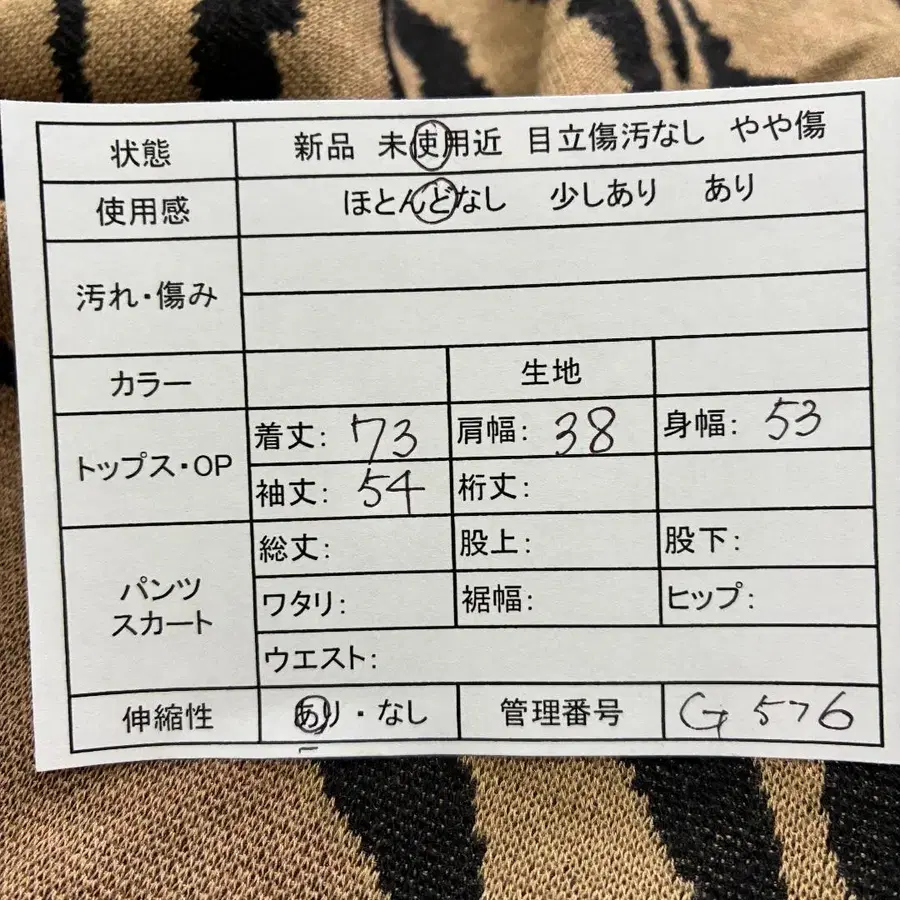 状態 新品 未使用近 目立傷汚なし やや傷
使用感 ほとんどなし 少しあり あり
汚れ・傷み
カラー 生地
トップス・OP 着丈: 73 肩幅: 38 身幅: 53
袖丈: 54 裄丈:
パンツ スカート 総丈: 股上: 股下:
ワタリ: 裾幅: ヒップ:
ウエスト:
伸縮性 あり・なし 管理番号 G576